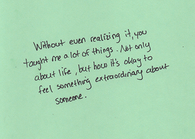 Without even realizing it, you
taught me a lot of things. Not only
about life, but how it's okay to
feel something extraordinary about
someone.